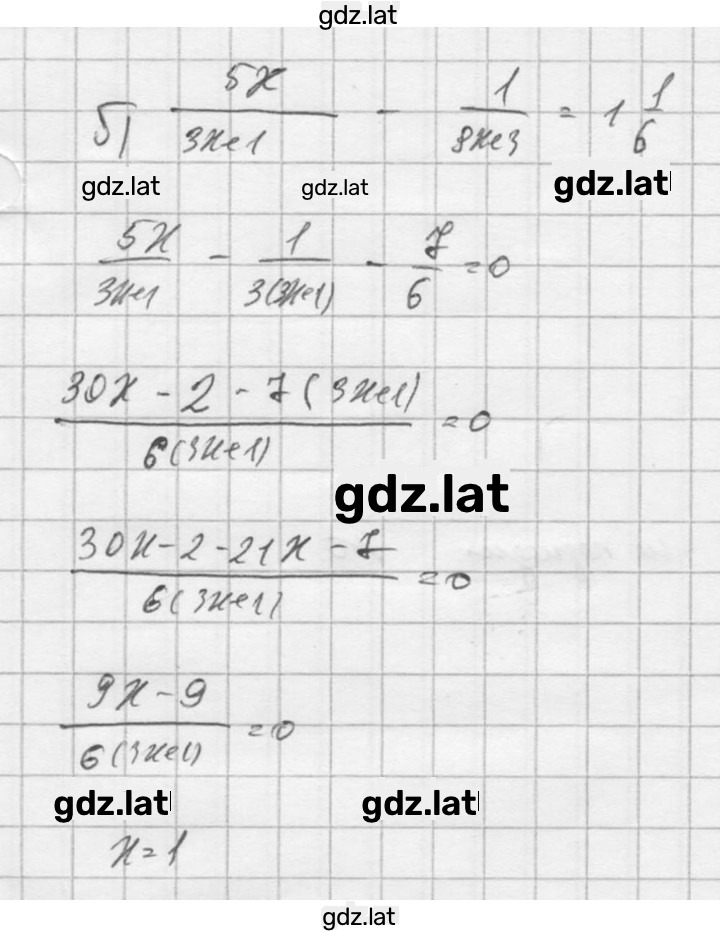 gdz.lat
б) 5x/(3x+1) - 1/(9x+3) = 1 1/6
gdz.lat gdz.lat gdz.lat
5x/(3x+1) - 1/(3(3x+1)) - 7/6 = 0
(30x - 2 - 7(3x+1))/(6(3x+1)) = 0
gdz.lat
(30x - 2 - 21x - 7)/(6(3x+1)) = 0
(9x - 9)/(6(3x+1)) = 0
gdz.lat gdz.lat
x = 1
gdz.lat